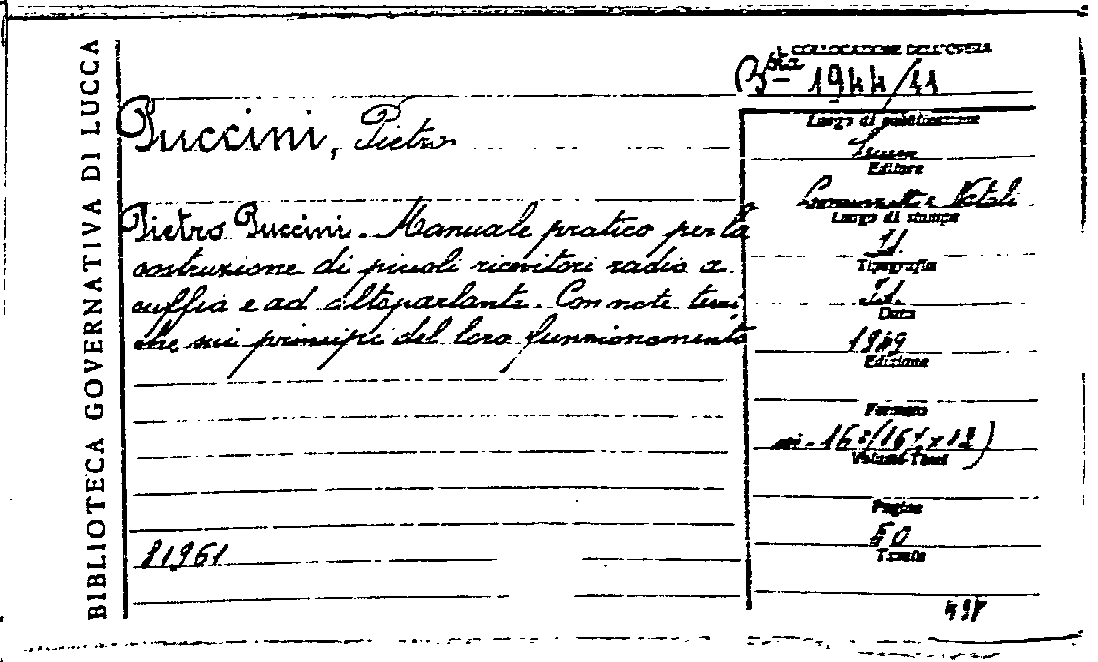 BIBLIOTECA GOVERNATIVA DI LUCCA
COLLOCAZIONE DELL'OPERA
Bta 1944/11
Puccini, Pietro
Pietro Puccini. Manuale pratico per la
costruzione di piccoli ricevitori radio a
cuffia e ad altoparlante. Con note tecni
che sui principi del loro funzionamento
81961
Luogo di pubblicazione
Lucca
Editore
Lorenzetti e Natali
Luogo di stampa
Id.
Tipografia
Id.
Data
1949
Edizione
Formato
in-16º(16½ x 12)
Volumi-Tomi
Pagine
50
Tavole